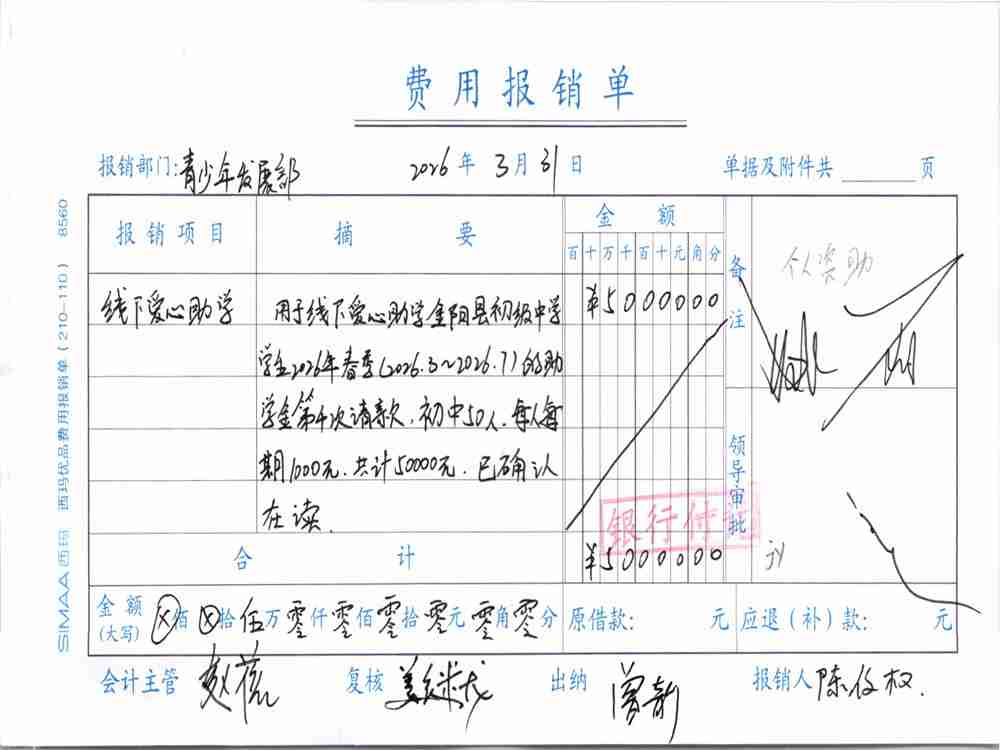 费用报销单
报销部门:青少年发展部 2026年3月31日 单据及附件共 页
报销项目 摘要 金额 备注
百十万千百十元角分
个人资助
线下爱心助学 用于线下爱心助学金阳县初级中学 ¥5000000
学生2026年春季(2026.3~2026.7)的助
学金第4次请款,初中50人,每人每
期1000元.共计50000元.已确认
在读.
领导审批
银行付讫
合计 ¥5000000
金额(大写) ⊗佰⊗拾伍万零仟零佰零拾零元零角零分 原借款: 元 应退(补)款: 元
会计主管 赵蕊 复核 出纳 曾新 报销人 陈俊权.
SIMAA西玛 西玛优品费用报销单(210—110) 8560